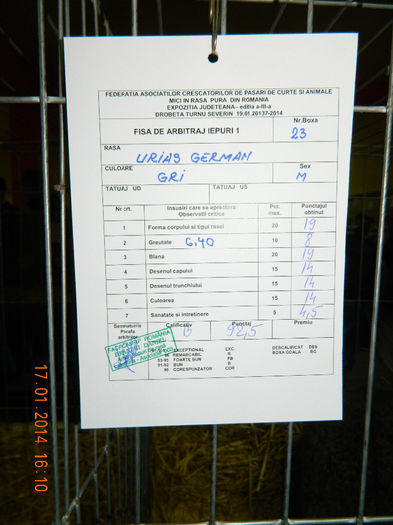 FEDERATIA ASOCIATILOR CRESCATORILOR DE PASARI DE CURTE SI ANIMALE
MICI IN RASA PURA DIN ROMANIA
EXPOZITIA JUDETEANA– editia a-III-a
DROBETA TURNU SEVERIN 19.01.20137-2014
FISA DE ARBITRAJ IEPURI 1
Nr.Boxa
23
RASA
URIAS GERMAN
CULOARE
GRI
Sex
M
TATUAJ UD
TATUAJ US
Nr ort. Insusiri care se apreciaza Pct. Punctajul
Observatii critice max. obtinut
1 Forma corpului si tipul rasei 20 19
2 Greutate 6,40 10 8
3 Blana 20 19
4 Desenul capului 15 14
5 Desenul trunchiului 15 14
6 Culoarea 15 14
7 Sanatate si intretinere 5 4,5
Semnatura Calificativ Punctaj Premiu
Parafa 92,5
arbitrului
FAPC ROMÂNIA
EXCEPTIONAL EXC. DESCALIFICAT DES
REMARCABIL R BOXA GOALA BG
FOARTE BUN FB
91-92 BUN B
90 CORESPUNZATOR COR
17.01.2014 16:10